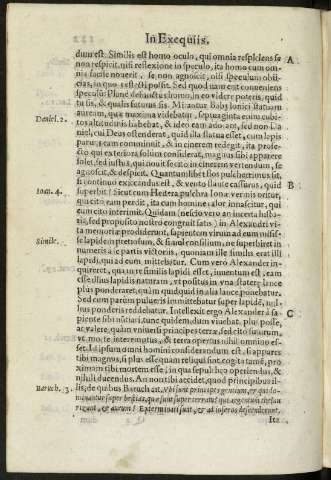 In Exequiis.
dum est. Similis est homo oculo, qui omnia respiciens se
non respicit, nisi reflexione in speculo, ita homo cum om-
nia facile noverit, se non agnoscit, nisi speculum obii-
cias, in quo respicere possit. Sed quodnam erit conveniens
speculum? Planè defunctus homo, in eo videre poteris, quid
tu sis, & qualis futurus sis. Mirantur Babylonici statuam
auream, quæ maxima videbatur, septuaginta enim cubi-
Daniel. 2.
tos altitudinis habebat, & ideo eam adorant, sed non Da-
niel, cui Deus ostenderat, quid illa statua esset, cum lapis
parvus eam comminuit, & in cinerem redegit, ita profe-
cto qui exteriora solùm considerat, magnus sibi apparere
solet, sed iustus, qui novit se totum in cinerem vertendum, se
agnoscit, & despicit. Quantumlibet flos pulcherrimus sit,
si continuo exiccandus est, & vento flante casurus, quid
superbit? Sicut enim Hedera pulchra Ionæ vermis oritur,
Ioan. 4.
qui cito eam perdit, ita cum homine labor innascitur, qui
eum cito interimit. Quidam (nescio vero an incerta histo-
ria, sed proposito nostro congruit satis) in Alexandri vi-
ta memoriæ prodiderunt, sapientem virum ad eum misis-
Simile.
se lapidem pretiosum, & simul consilium, ne superbiret in
numeris à se partis victoriis, quoniam ille similis erat illi
lapidi, quem ad eum mittebat. Cum verò Alexander in-
quireret, quanam re similis lapidi esset, inventum est, eam
esse illius lapidis naturam, ut positus in una statera lance
plus ponderaret, quàm quidquid in alia lance ponebatur.
Sed cum parum pulveris immittebatur super lapidem, nul-
lius ponderis reddebatur. Intellexit ergo Alexander à sa-
piente sibi nuntiari, tunc quidem, dum vivebat, plus posse,
ac valere, quàm universi principes terræ, sed cito futurum,
ut morte interemptus, & terra opertus nihil omnino es-
set. Id ipsum omni homini considerandum est, si apparet
tibi magnus, si plus esse quàm reliqui sint, cogita tamen, pro-
ximam tibi mortem esse, in qua sepulchro operiendus, &
nihili ducendus. An non tibi accidet, quod principibus il-
lis, de quibus Baruch ait. Ubi sunt principes gentium, & qui do-
Baruch. 3.
minantur super bestias, quæ sunt super terram? qui argentum thesau-
rizant, & aurum? Exterminati sunt, & ad inferos descenderunt.
Ita
A
B
C